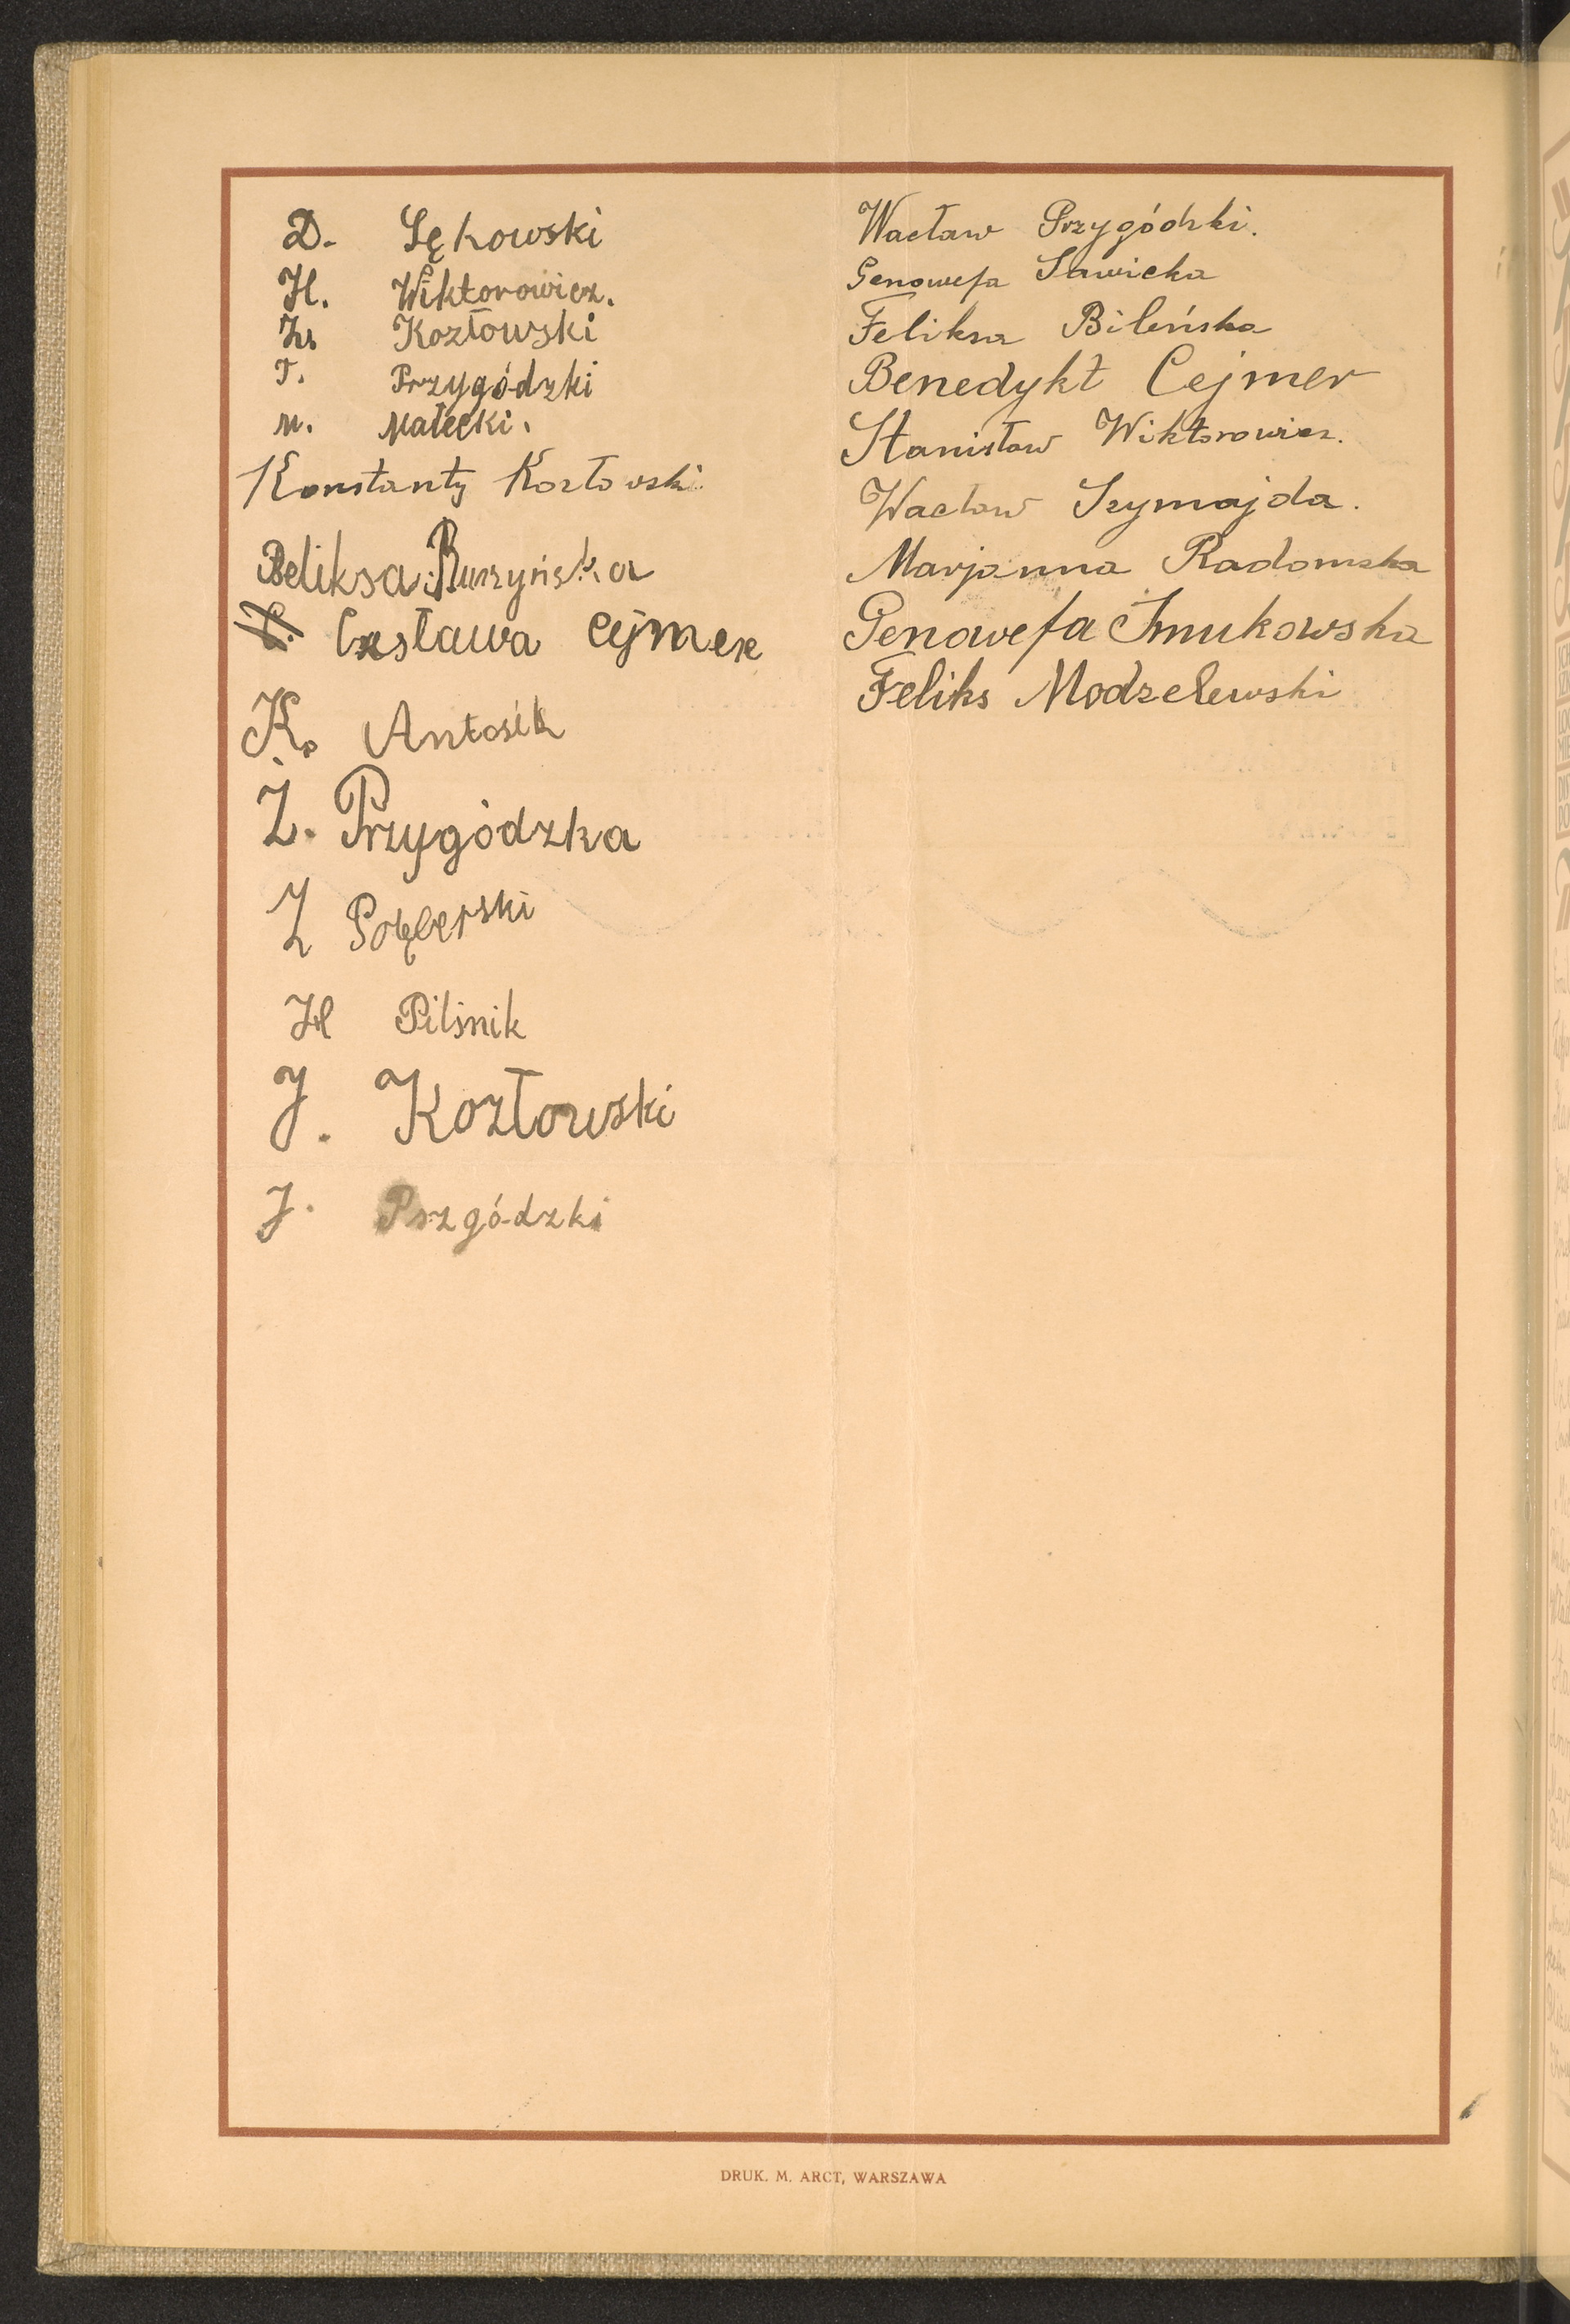 D. Sękowski
H. Wiktorowicz.
Z. Kozłowski
T. Przygódzki
M. Małecki.
Konstanty Kozłowski
Beliksa Ruszyńska
Czsława Cejmer
K. Antosik
Ż. Przygódzka
Z
H Pilśnik
J. Kozłowski
J. Pszgódzki
Wacław Przygódzki.
Genowefa Sawicka
Feliksa Bileńska
Benedykt Cejmer
Stanisław Wiktorowicz.
Wacław Szymajda.
Marjanna Radomska
Genowefa Żmukowska
Feliks Modzelewski
DRUK. M. ARCT, WARSZAWA